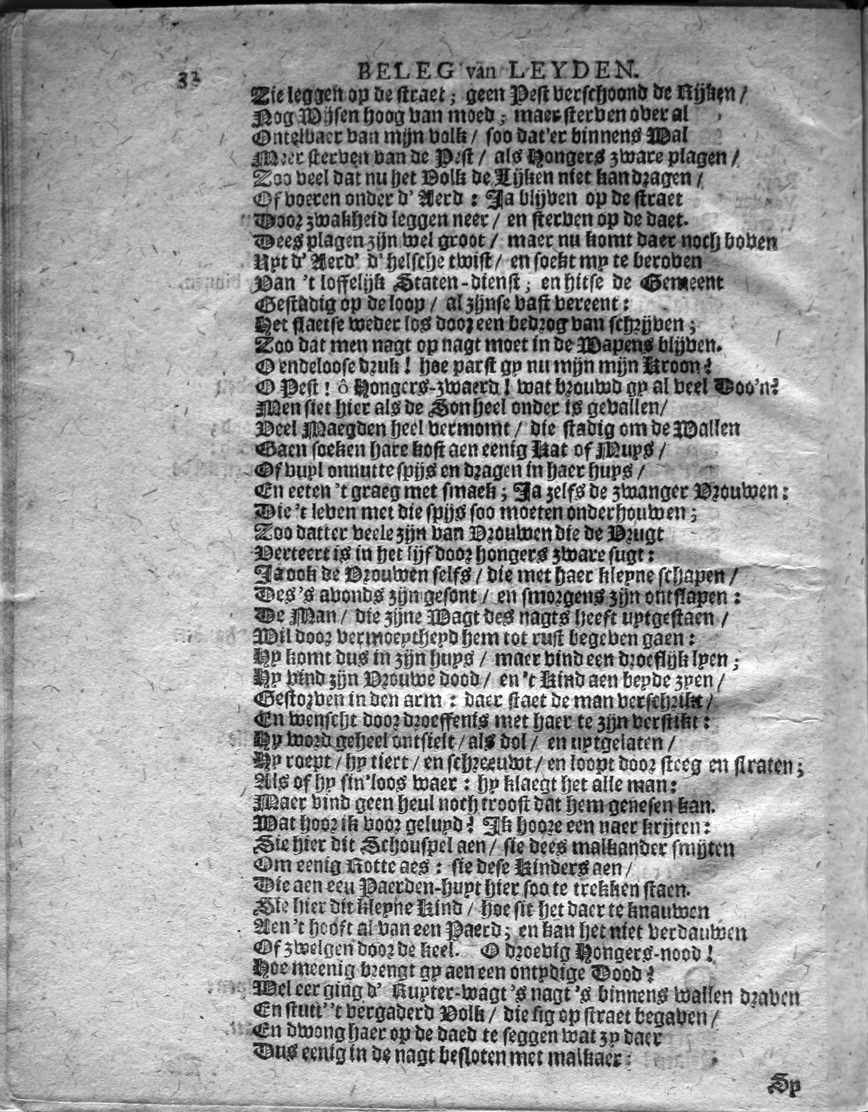 32
BELEG van LEYDEN.
Zie leggen op de straet; geen Pest verschoond de Rijken /
Nog Wijsen hoog van moed; maer sterven over al
Ontelbaer van mijn volk / soo dat'er binnens Wal
Meer sterven van de Pest / als Hongers zware plagen /
Zoo veel dat nu het Volk de Lijken niet kan dragen /
Of voeren onder d' Aerd : Ja blijven op de straet
Door zwakheid leggen neer / en sterven op de daet.
Dees plagen zijn wel groot / maer nu komt daer noch boven
Uyt d' Aerd' d' helsche twist / en soekt my te beroven
Van 't loffelijk Staten-dienst; en hitse de Gemeent
Gestadig op de loop / al zijnse vast vereent :
Het slaetse weder los door een bedrog van schrijven ;
Zoo dat men nagt op nagt moet in de Wapens blijven.
O endeloose druk ! hoe parst gy nu mijn mijn Kroon?
O Pest ! ô Hongers-zwaerd ! wat brouwd gy al veel Doo'n?
Men siet hier als de Son heel onder is gevallen /
Veel Maegden heel vermomt / die stadig om de Wallen
Gaen soeken hare kost aen eenig Kat of Muys /
Of vuyl onnutte spijs en dragen in haer huys /
En eeten 't graeg met smaek ; Ja zelfs de zwanger Vrouwen :
Die 't leven met die spijs soo moeten onderhouwen ;
Zoo datter veele zijn van Vrouwen die de Vrugt
Verteert is in het lijf door hongers zware sugt :
Ja ook de Vrouwen selfs / die met haer kleyne schapen /
Des 's avonds zijn gesont / en smorgens zijn ontslapen :
De Man / die zijne Wagt des nagts heeft uytgestaen /
Wil door vermoeytheyd hem tot rust begeven gaen :
Hy komt dus in zijn huys / maer vind een droeflijk lyen ;
Hy vind zijn Vrouwe dood / en 't Kind aen beyde zyen /
Gestorven in den arm : daer staet de man verschrikt /
En wenscht door droeffenis met haer te zijn verstikt :
Hy word geheel ontsielt / als dol / en uytgelaten /
Hy roept / hy tiert / en schreeuwt / en loopt door steeg en straten ;
Als of hy sin'loos waer : hy klaegt het alle man :
Maer vind geen heul noch troost dat hem genesen kan.
Wat hoor ik voor geluyd? Ik hoore een naer krijten :
Sie hier dit Schouspel aen / sie dees malkander smijten
Om eenig Rotte aes : sie dese Kinders aen /
Die aen een Paerden-huyt hier soo te trekken staen.
Sie hier dit kleyne Kind / hoe sit het daer te knauwen
Aen 't hooft al van een Paerd; en kan het niet verdauwen
Of zwelgen door de keel. O droevig Hongers-nood !
Hoe meenig brengt gy aen een ontydige Dood?
Wel eer ging d' Ruyter-wagt 's nagt 's binnens wallen draven
En stutt' 't vergaderd Volk / die sig op straet begaven /
En dwong haer op de daed te seggen wat zy daer
Dus eenig in de nagt besloten met malkaer :
Sy